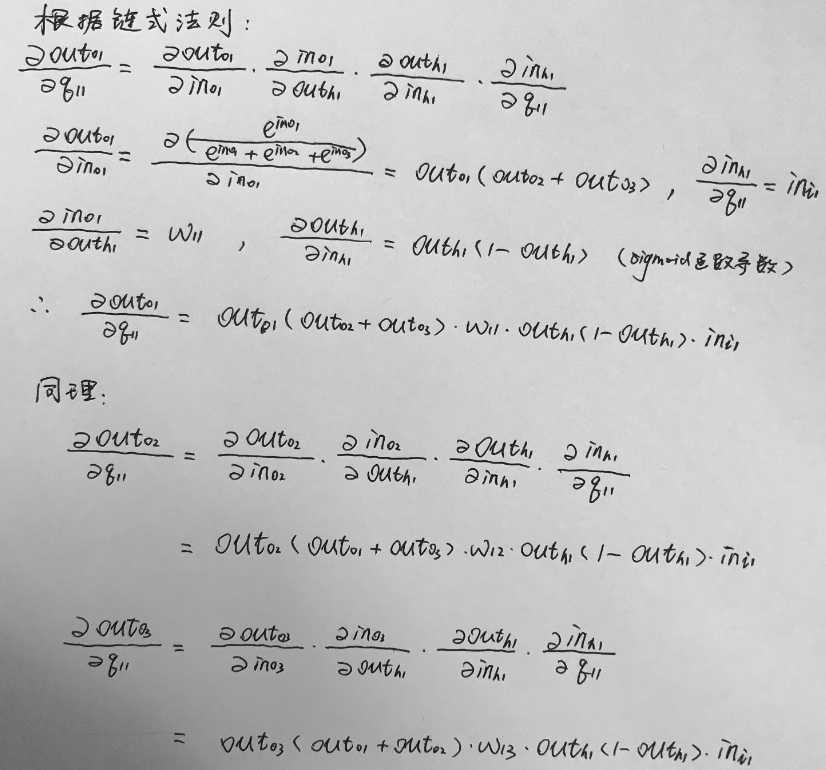 根据链式法则:
∂out₀₁/∂q₁₁ = ∂out₀₁/∂in₀₁ · ∂in₀₁/∂outₕ₁ · ∂outₕ₁/∂inₕ₁ · ∂inₕ₁/∂q₁₁
∂out₀₁/∂in₀₁ = ∂(e^{in₀₁}/(e^{in₀₁} + e^{in₀₂} + e^{in₀₃}))/∂in₀₁ = out₀₁(out₀₂ + out₀₃), ∂inₕ₁/∂q₁₁ = inᵢ₁
∂in₀₁/∂outₕ₁ = w₁₁ , ∂outₕ₁/∂inₕ₁ = outₕ₁(1 - outₕ₁) (sigmoid函数导数)
∴ ∂out₀₁/∂q₁₁ = out₀₁(out₀₂ + out₀₃) · w₁₁ · outₕ₁(1 - outₕ₁) · inᵢ₁
同理:
∂out₀₂/∂q₁₁ = ∂out₀₂/∂in₀₂ · ∂in₀₂/∂outₕ₁ · ∂outₕ₁/∂inₕ₁ · ∂inₕ₁/∂q₁₁
= out₀₂(out₀₁ + out₀₃) · w₁₂ · outₕ₁(1 - outₕ₁) · inᵢ₁
∂out₀₃/∂q₁₁ = ∂out₀₃/∂in₀₃ · ∂in₀₃/∂outₕ₁ · ∂outₕ₁/∂inₕ₁ · ∂inₕ₁/∂q₁₁
= out₀₃(out₀₁ + out₀₂) · w₁₃ · outₕ₁(1 - outₕ₁) · inᵢ₁